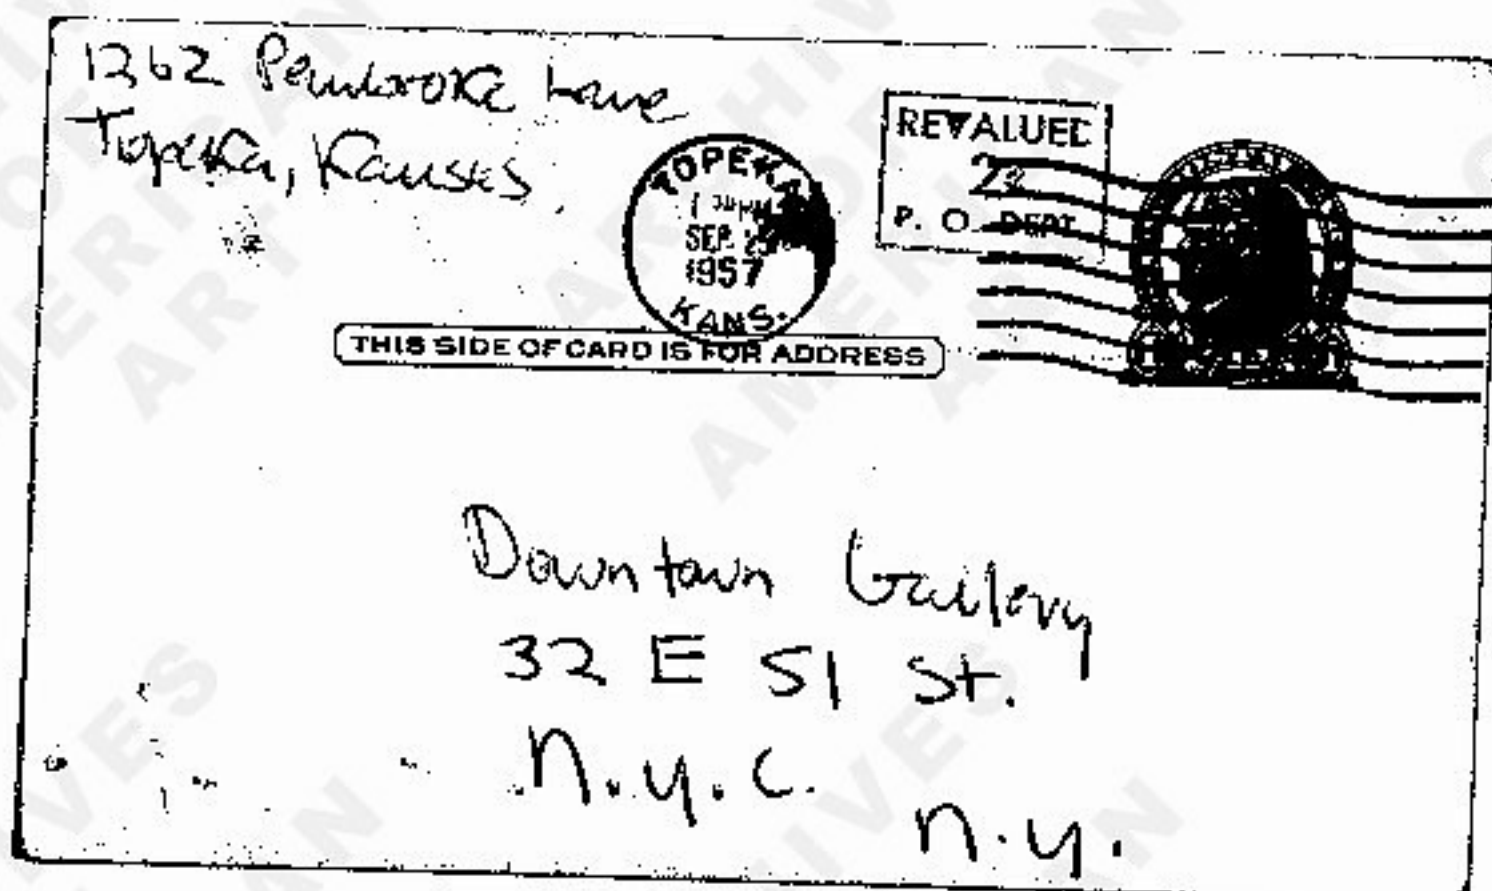 1262 Pembroke Lane
Topeka, Kansas
TOPEKA
SEP.
1957
KANS.
REVALUED
2¢
P. O. DEPT
THIS SIDE OF CARD IS FOR ADDRESS
Downtown Gallery
32 E 51 St.
N.Y.C.
N.Y.